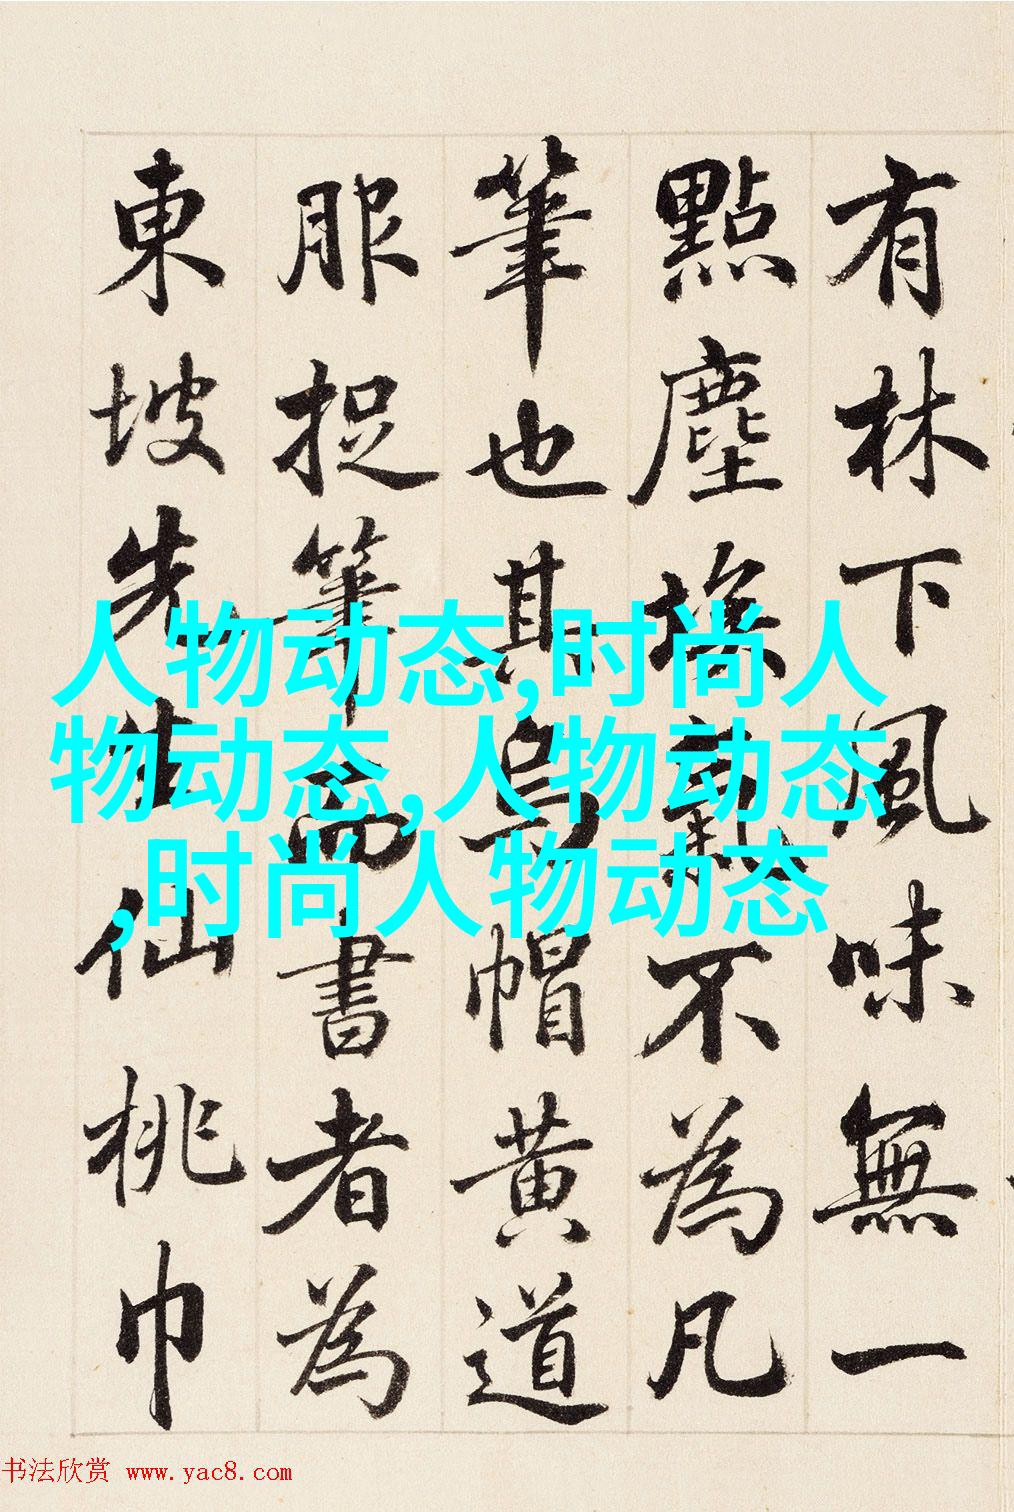 有林下風味無一
點塵埃氣不為凡
筆也其烏帽黃道
服捉筆而書者為
東坡先生仙桃巾
人物动态,时尚人
物动态,人物动态
,时尚人物动态
书法欣赏 www.yac8.com